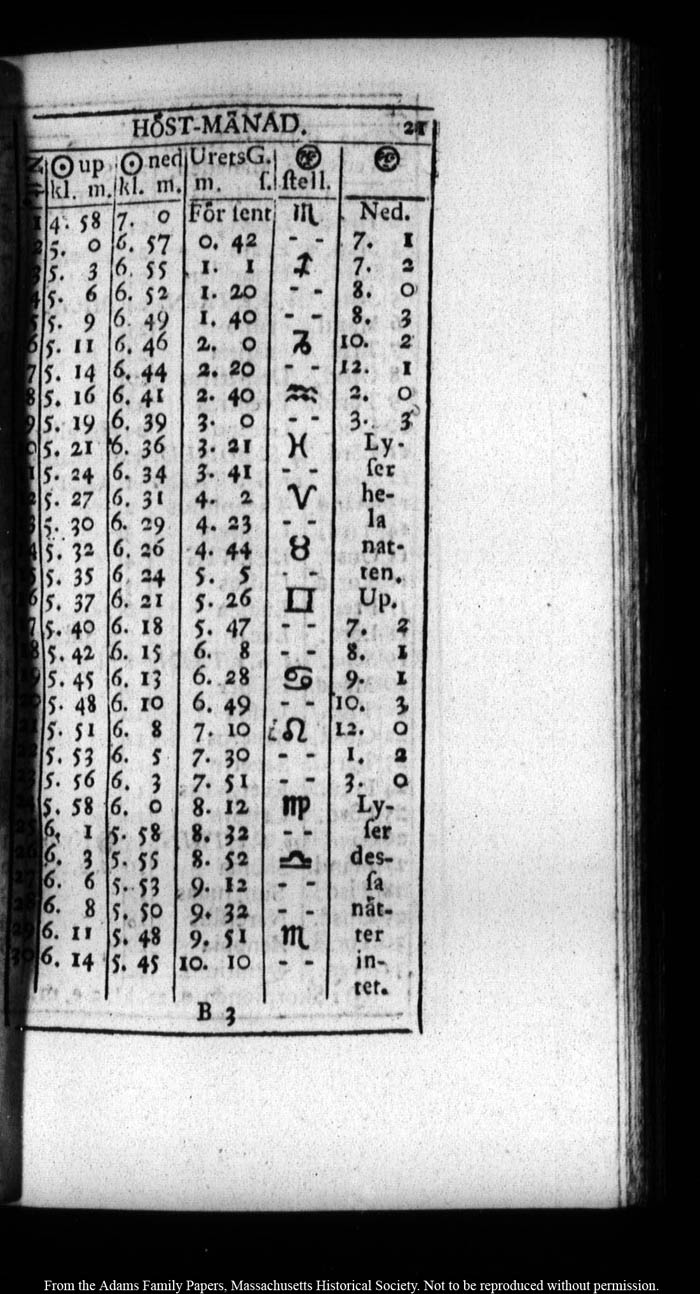 HÖST-MÅNAD. 21
☉ up ☉ ned UretsG.
kl. m. kl. m. m. ſ. ſtell.
1 4. 58 7. 0 För ſent ♏ Ned.
2 5. 0 6. 57 0. 42 - - 7. 1
3 5. 3 6. 55 1. 1 ♐ 7. 2
4 5. 6 6. 52 1. 20 - - 8. 0
5 5. 9 6. 49 1. 40 - - 8. 3
6 5. 11 6. 46 2. 0 ♑ 10. 2
7 5. 14 6. 44 2. 20 - - 12. 1
8 5. 16 6. 41 2. 40 ♒ 2. 0
9 5. 19 6. 39 3. 0 - - 3. 3
0 5. 21 6. 36 3. 21 ♓ Ly-
1 5. 24 6. 34 3. 41 - - ſer
2 5. 27 6. 31 4. 2 ♈ he-
3 5. 30 6. 29 4. 23 - - la
14 5. 32 6. 26 4. 44 ♉ nat-
5 5. 35 6. 24 5. 5 - - ten.
16 5. 37 6. 21 5. 26 ♊ Up.
17 5. 40 6. 18 5. 47 - - 7. 2
18 5. 42 6. 15 6. 8 - - 8. 1
19 5. 45 6. 13 6. 28 ♋ 9. 1
20 5. 48 6. 10 6. 49 - - 10. 3
21 5. 51 6. 8 7. 10 i ♌ 12. 0
22 5. 53 6. 5 7. 30 - - 1. 2
23 5. 56 6. 3 7. 51 - - 3. 0
24 5. 58 6. 0 8. 12 ♍ Ly-
25 6. 1 5. 58 8. 32 - - ſer
26 6. 3 5. 55 8. 52 ♎ des-
27 6. 6 5. 53 9. 12 - - ſa
28 6. 8 5. 50 9. 32 - - nät-
29 6. 11 5. 48 9. 51 ♏ ter
30 6. 14 5. 45 10. 10 - - in-
tet.
B 3
From the Adams Family Papers, Massachusetts Historical Society. Not to be reproduced without permission.